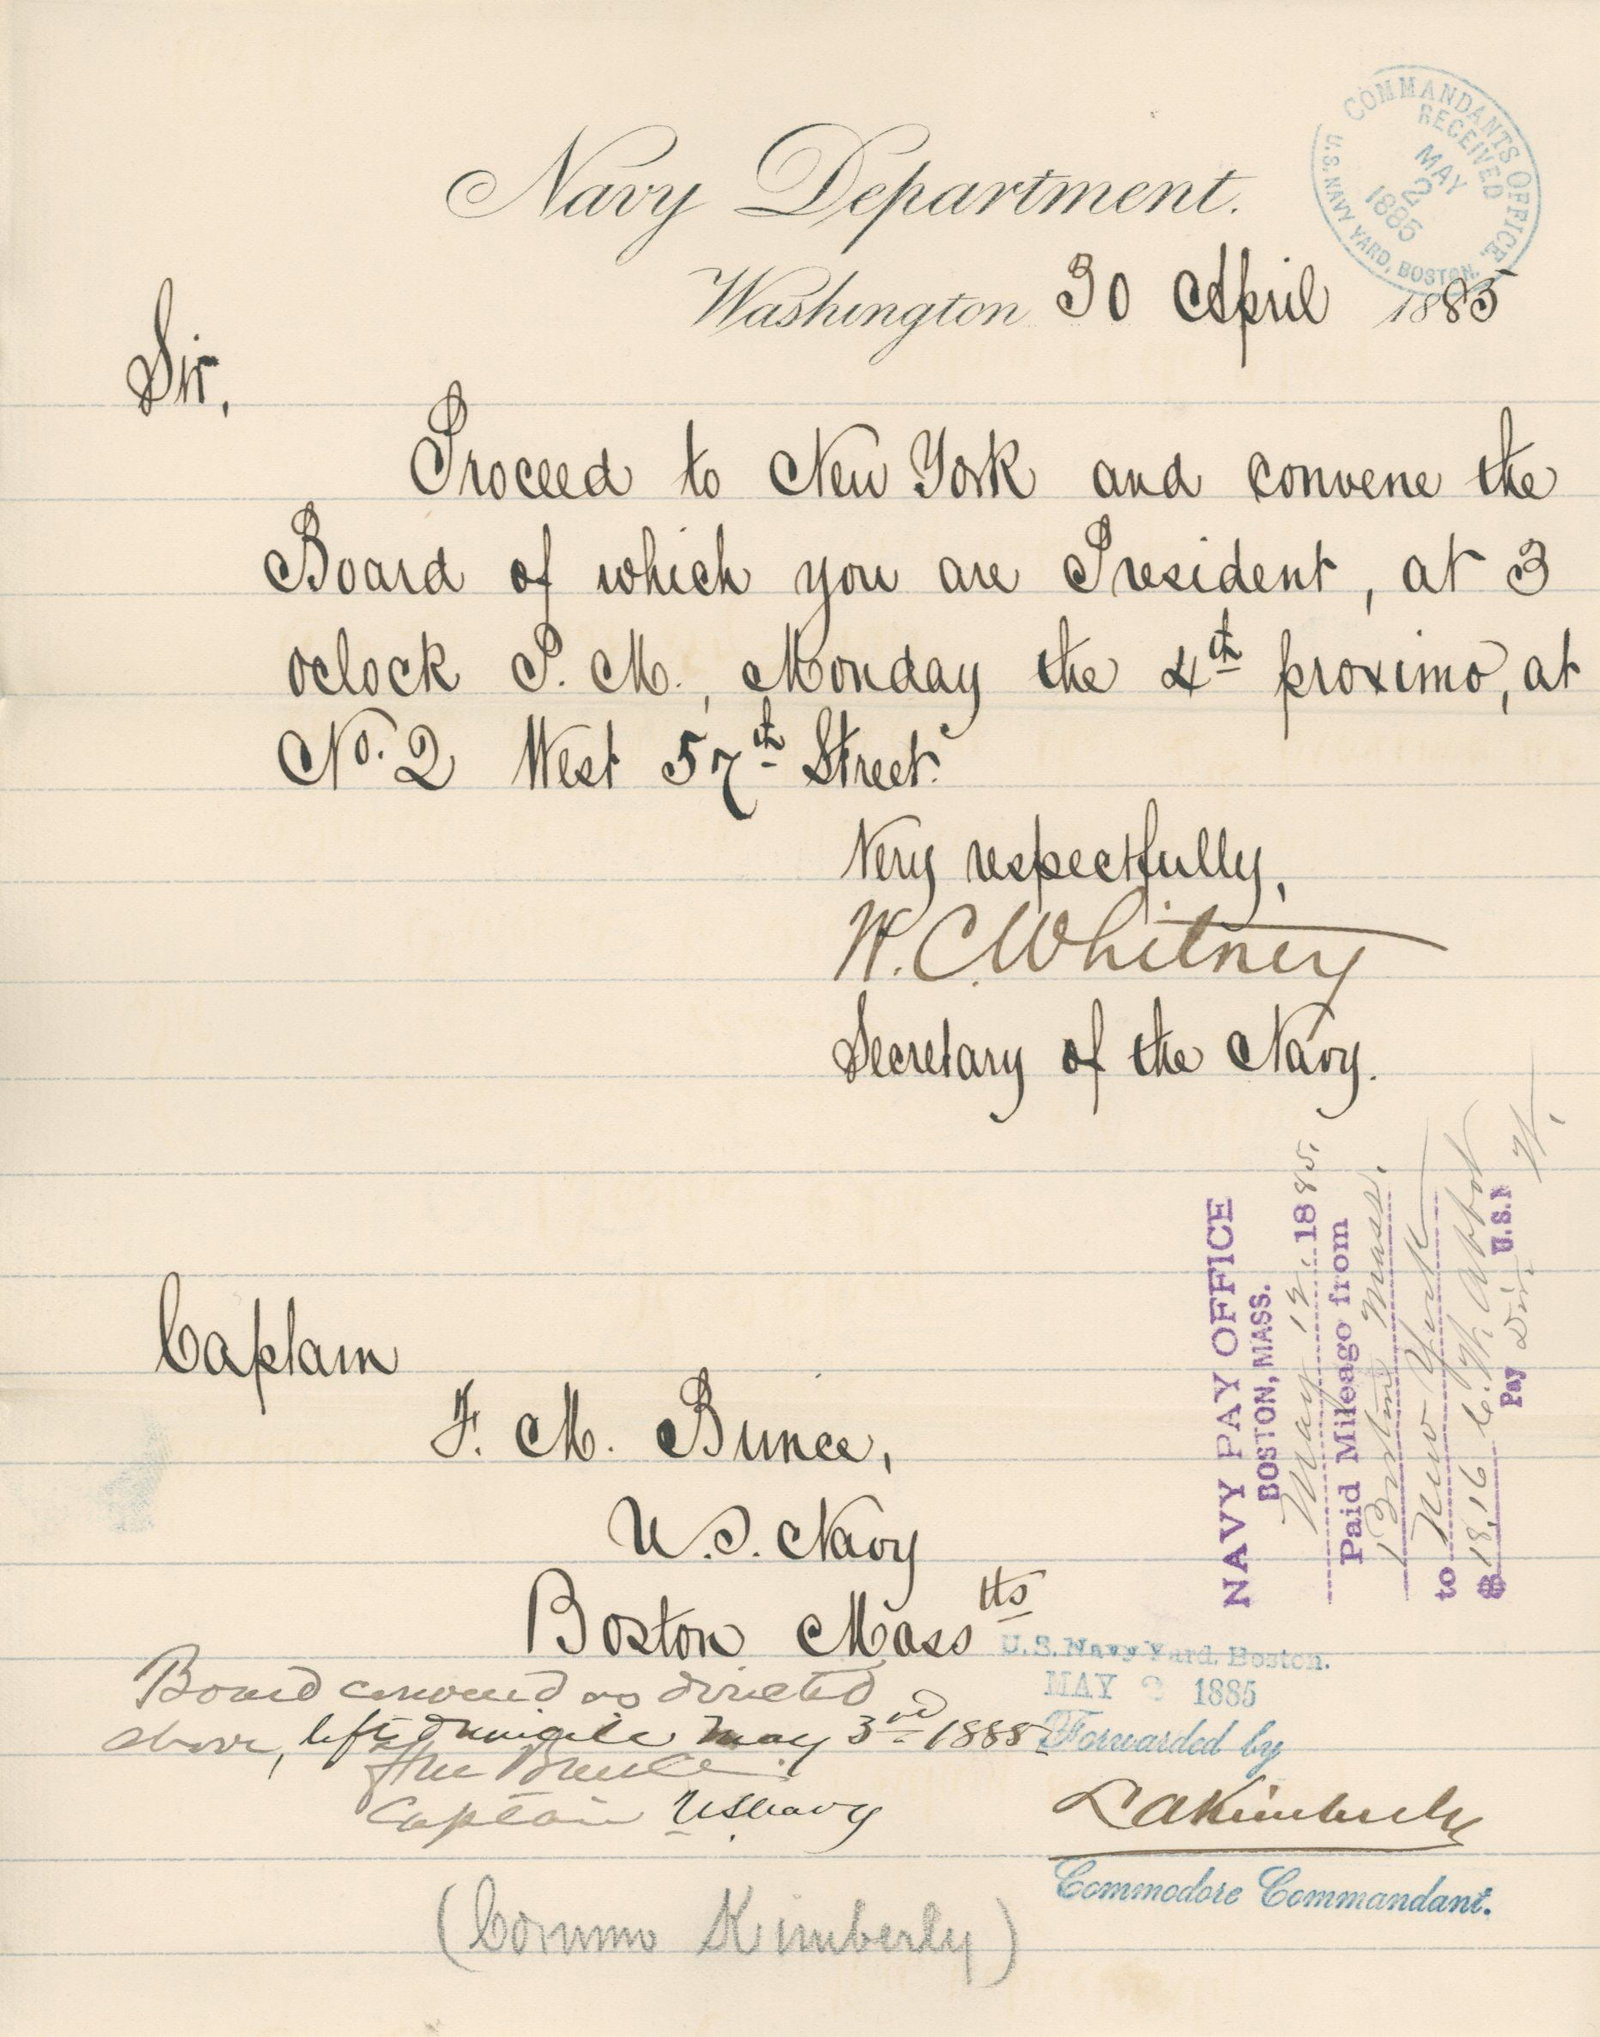 Navy Department.
COMMANDANTS OFFICE.
RECEIVED
MAY
2
1885
U.S. NAVY YARD, BOSTON.
Washington 30 April 1885
Sir,
Proceed to New York and convene the
Board of which you are President, at 3
oclock P. M., Monday the 4th proximo, at
No. 2 West 57th Street.
Very respectfully,
W. C. Whitney
Secretary of the Navy.
NAVY PAY OFFICE
BOSTON, MASS.
May 12. 1885.
Paid Mileage from
Boston Mass.
to New York
$18.16
Pay U.S.N
Captain
F. M. Bunce,
U. S. Navy
Boston Masstts
U.S. Navy Yard, Boston.
MAY 2 1885
Forwarded by
L A Kimberly
Commodore Commandant.
Board convened as directed
above, left May 3rd 1885
Bunce
Captain US Navy
(Commo Kimberly)